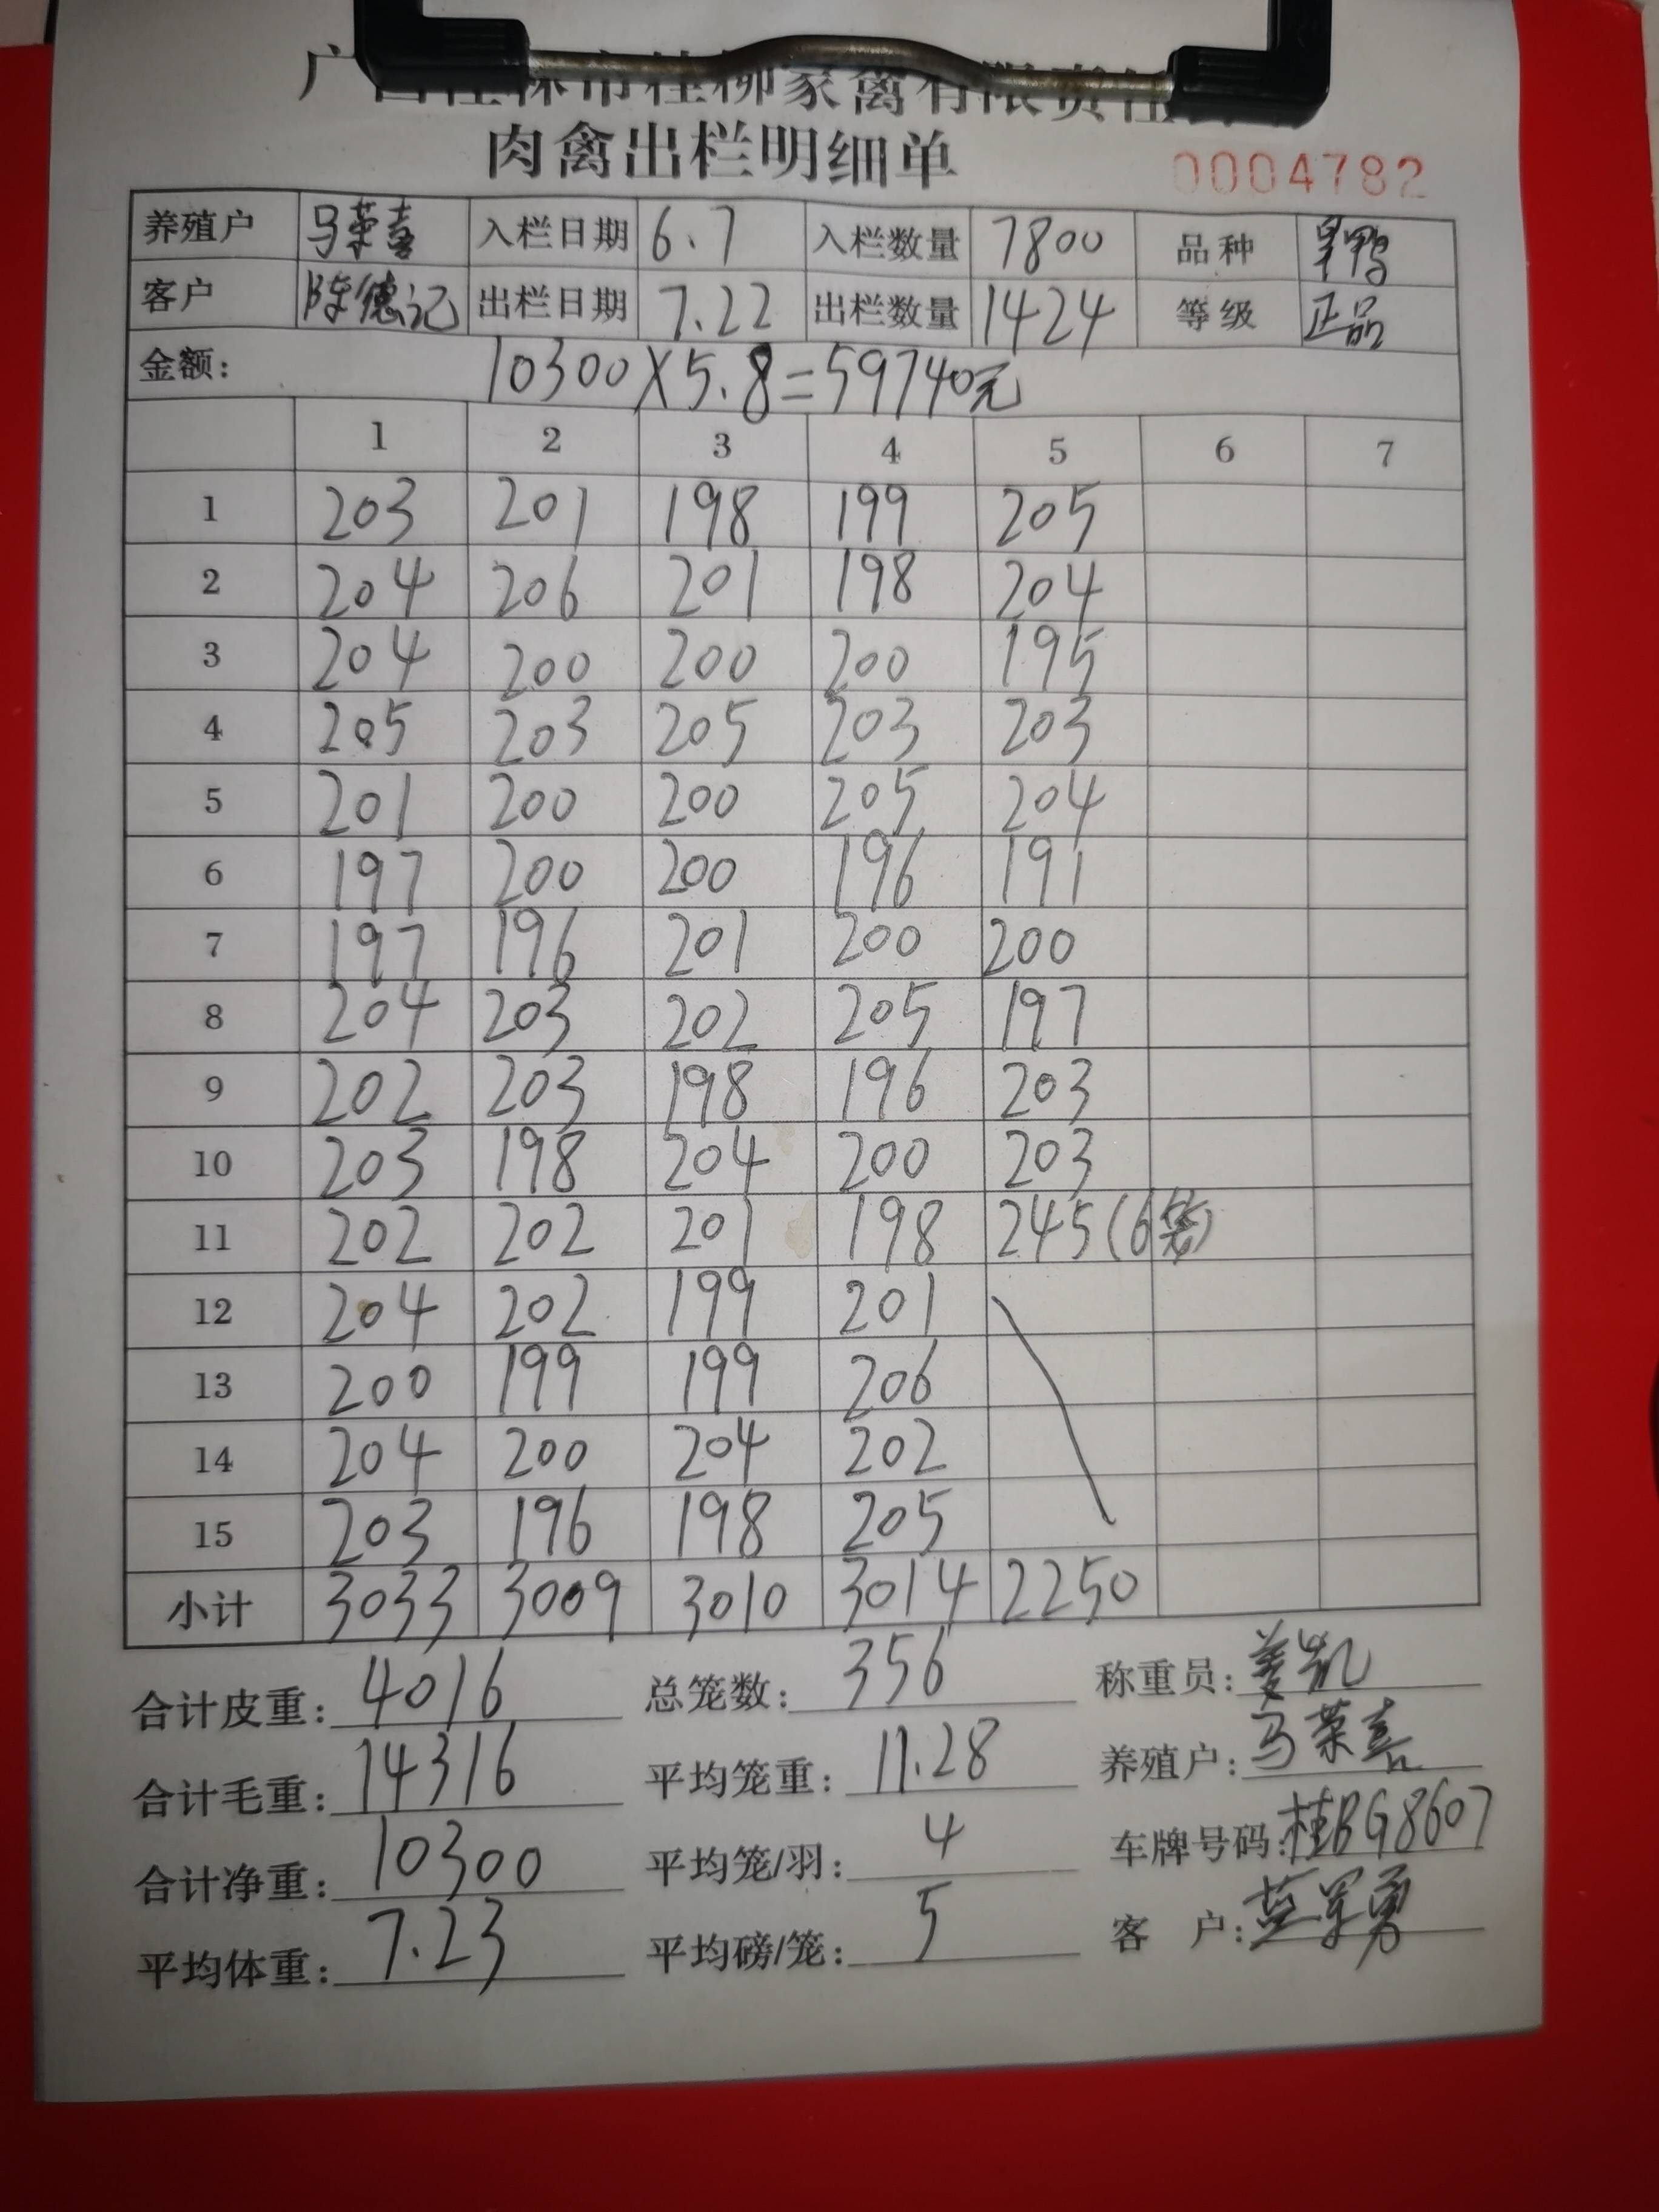 广西桂林市桂柳家禽有限责任
肉禽出栏明细单
0004782
养殖户 马荣喜 入栏日期 6.7 入栏数量 7800 品种 旱鸭
客户 陈德记 出栏日期 7.22 出栏数量 1424 等级 正品
金额: 10300×5.8=59740元
1 2 3 4 5 6 7
1 203 201 198 199 205
2 204 206 201 198 204
3 204 200 200 200 195
4 205 203 205 203 203
5 201 200 200 205 204
6 197 200 200 196 191
7 197 196 201 200 200
8 204 203 202 205 197
9 202 203 198 196 203
10 203 198 204 200 203
11 202 202 201 198 245(6笼)
12 204 202 199 201
13 200 199 199 206
14 204 200 204 202
15 203 196 198 205
小计 3033 3009 3010 3014 2250
合计皮重: 4016 总笼数: 356 称重员: 姜凯
合计毛重: 14316 平均笼重: 11.28 养殖户: 马荣喜
合计净重: 10300 平均笼/羽: 4 车牌号码: 桂BG8607
平均体重: 7.23 平均磅/笼: 5 客 户: